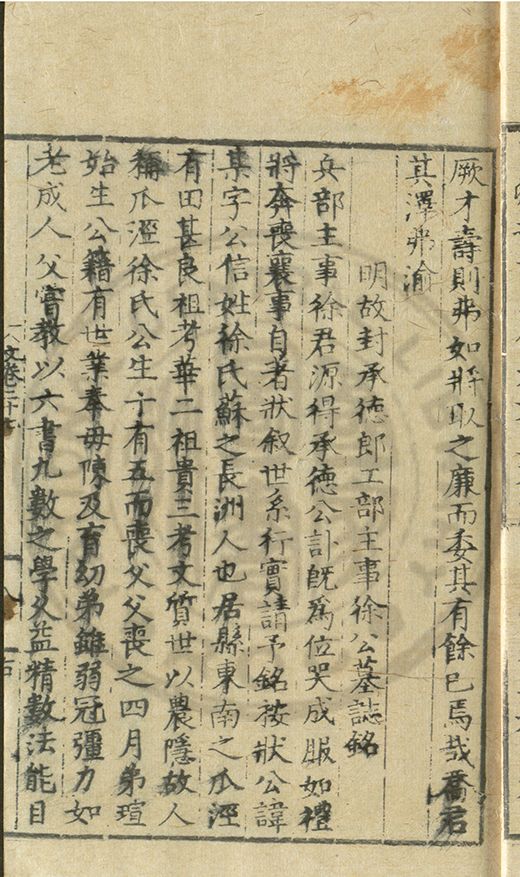 厥才壽則弗如將取之廉而委其有餘已焉哉喬君
其澤弗渝
明故封承德郎工部主事徐公墓誌銘
兵部主事徐君源得承德公訃旣爲位哭成服如禮
將奔喪襄事自者狀叙世系行實請予銘按狀公諱
某字公信姓徐氏蘇之長洲人也居縣東南之瓜涇
有田甚良祖考華二祖貴三考文質世以農隱故人
稱瓜涇徐氏公生十有五而喪父父喪之四月弟瑄
始生公籍有世業奉毋陳及育幼弟雖弱冠彊力如
老成人父嘗教以六書九數之學久益精數法能目
文卷二十